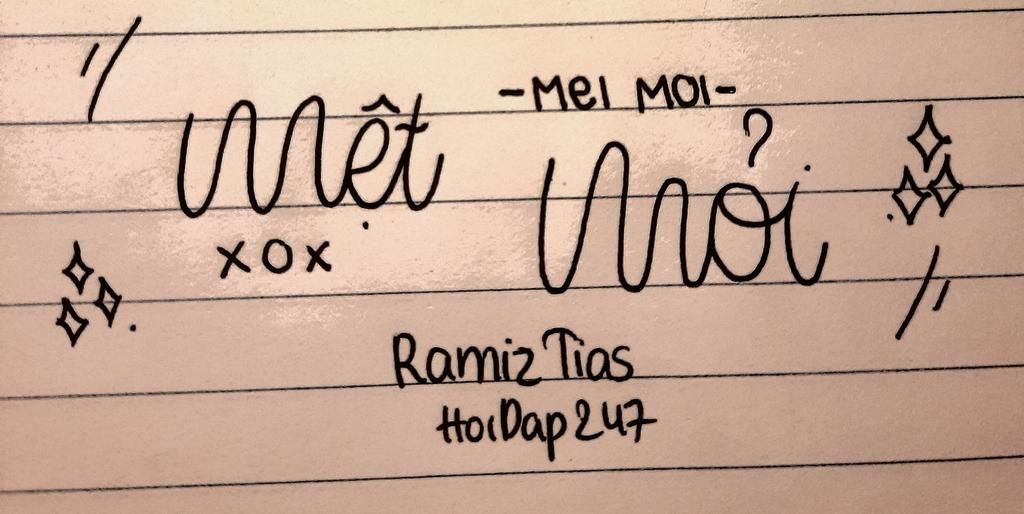 Mệt
-MEI MOI-
Mỏi
xox
Ramiz Tias
HoiDap247